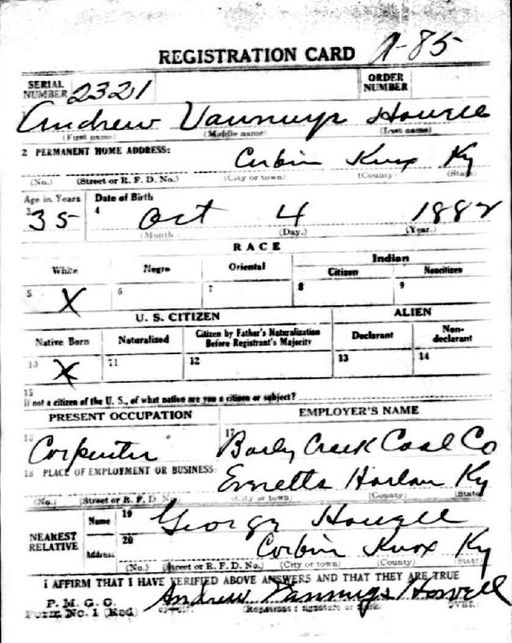 REGISTRATION CARD A-85
SERIAL NUMBER 2321 ORDER NUMBER
Andrew Vannuys Howell
(First name) (Middle name) (Last name)
2 PERMANENT HOME ADDRESS:
Corbin Knox Ky
(No.) (Street or R. F. D. No.) (City or town) (County) (State)
Age in Years Date of Birth
3 4
35 Oct 4 1882
(Month) (Day) (Year)
RACE
White Negro Oriental Indian
Citizen Noncitizen
5 X 6 7 8 9
U. S. CITIZEN ALIEN
Native Born Naturalized Citizen by Father's Naturalization Before Registrant's Majority Declarant Non-declarant
10 X 11 12 13 14
15
If not a citizen of the U. S., of what nation are you a citizen or subject?
PRESENT OCCUPATION EMPLOYER'S NAME
16 17
Carpenter Creek Coal Co
18 PLACE OF EMPLOYMENT OR BUSINESS:
Harlan Ky
(No.) (Street or R. F. D. No.) (City or town) (County) (State)
NEAREST RELATIVE Name 19 George Howell
Address 20 Corbin Knox Ky
(No.) (Street or R. F. D. No.) (City or town) (County) (State)
I AFFIRM THAT I HAVE VERIFIED ABOVE ANSWERS AND THAT THEY ARE TRUE
P. M. G. O.
Form No. 1 (Red) Andrew Vannuys Howell
(Registrant's signature or mark) OVER